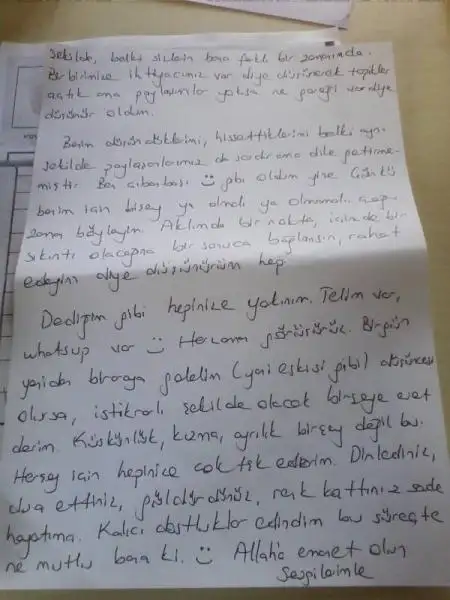 Şekilde, belki sizlerin bana farklı bir zamanında.
Birbirimize ihtiyacımız var diye düşünerek topikler
açtık ama paylaşımlar yoksa ne gereği var diye
düşünür oldum.
Benim düşündüklerimi, hissettiklerimi belki aynı
şekilde paylaşanlarımız da vardır ama dile getirme-
miştir. Ben :) gibi oldum yine Çünkü
benim için bişey ya olmalı ya olmamalı. her
zama böyleyim. Aklımda bir nokta, içimde bir
sıkıntı olacağına bir sonuca bağlansın, rahat
edeyim diye düşünürüm hep.
Dediğim gibi hepinize yakınım. Telim var,
whatsup var :) Her zaman görüşürüz. Birgün
yeniden biraraya gelelim (yani eskisi gibi) düşüncesi
olursa, istikrarlı şekilde olacak birşeye evet
derim. Küskünlük, kızma, ayrılık birşey değil bu.
Herşey için hepinize çok tşk ederim. Dinlediniz,
dua ettiniz, güldürdünüz, renk kattınız sade
hayatıma. Kalıcı dostluklar edindim bu süreçte
ne mutlu bana ki. :) Allah'a emanet olun
Sevgilerimle